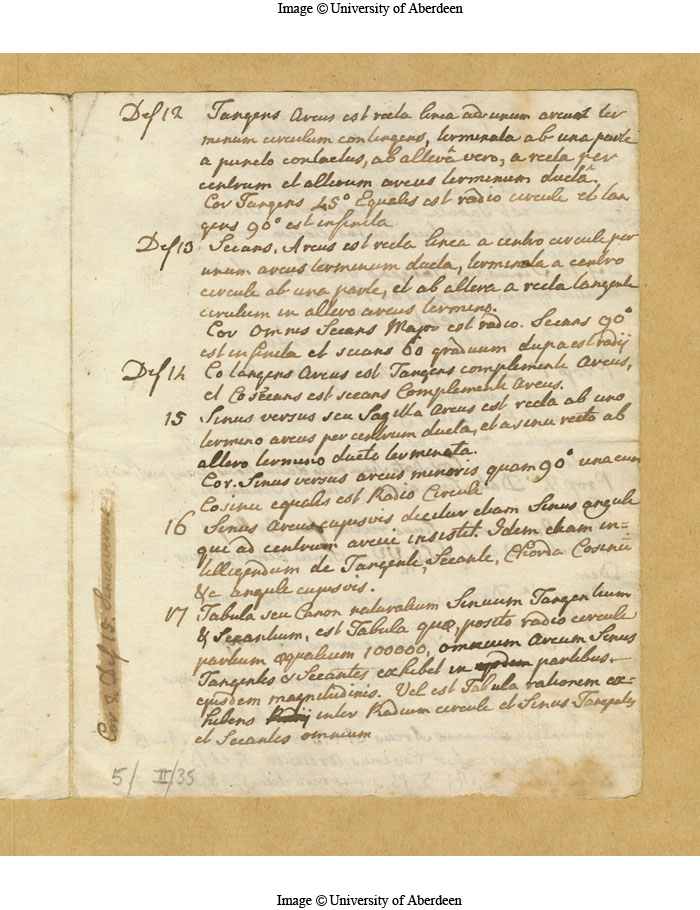 Image © University of Aberdeen
Def 12 Tangens Arcus est recta linea ad unum arcus ter
minum circulum contingens, terminata ab una parte
a puncto contactus, ab alterâ vero, a recta per
centrum et alterum arcus terminum ductâ.
Cor Tangens 45° Equalis est radio circuli et tan
gens 90° est infinita
Def 13 Secans, Arcus est recta linea a centro circuli per
unum arcus terminum ducta, terminata a centro
circuli ab una parte, et ab altera a recta tangente
circulum in altero arcus termino.
Cor Omnis Secans Major est radio. Secans 90°
est infinita et secans 60 graduum dupa est radij
Def 14 Co tangens Arcus est Tangens complementi Arcus,
et Cosecans est secans Complementi Arcus.
15 Sinus versus seu Sagitta Arcus est recta ab uno
termino arcus per centrum ducta, et a sinu recto ab
altero termino ducto terminata.
Cor. Sinus versus arcus minoris quam 90° una cum
Cosinu equalis est Radio Circuli
16 Sinus Arcus cujusvis dicitur etiam Sinus anguli
qui ad centrum arcui insistit. Idem etiam in=
telligendum de Tangente, Secante, Chorda Cosinu
&c anguli cujusvis.
17 Tabula seu Canon naturalium Sinuum Tangentium
& Secantium, est Tabula quæ, posito radio circuli
partium æqualium 100000, omnium Arcuum Sinus
Tangentes & Secantes exhibet in partibus
ejusdem magnitudinis. Vel est Tabula rationem ex=
hibens inter Radium circuli et Sinus Tangentes
et Secantes omnium
Cor 2 Def 15.
5/ II/35
Image © University of Aberdeen